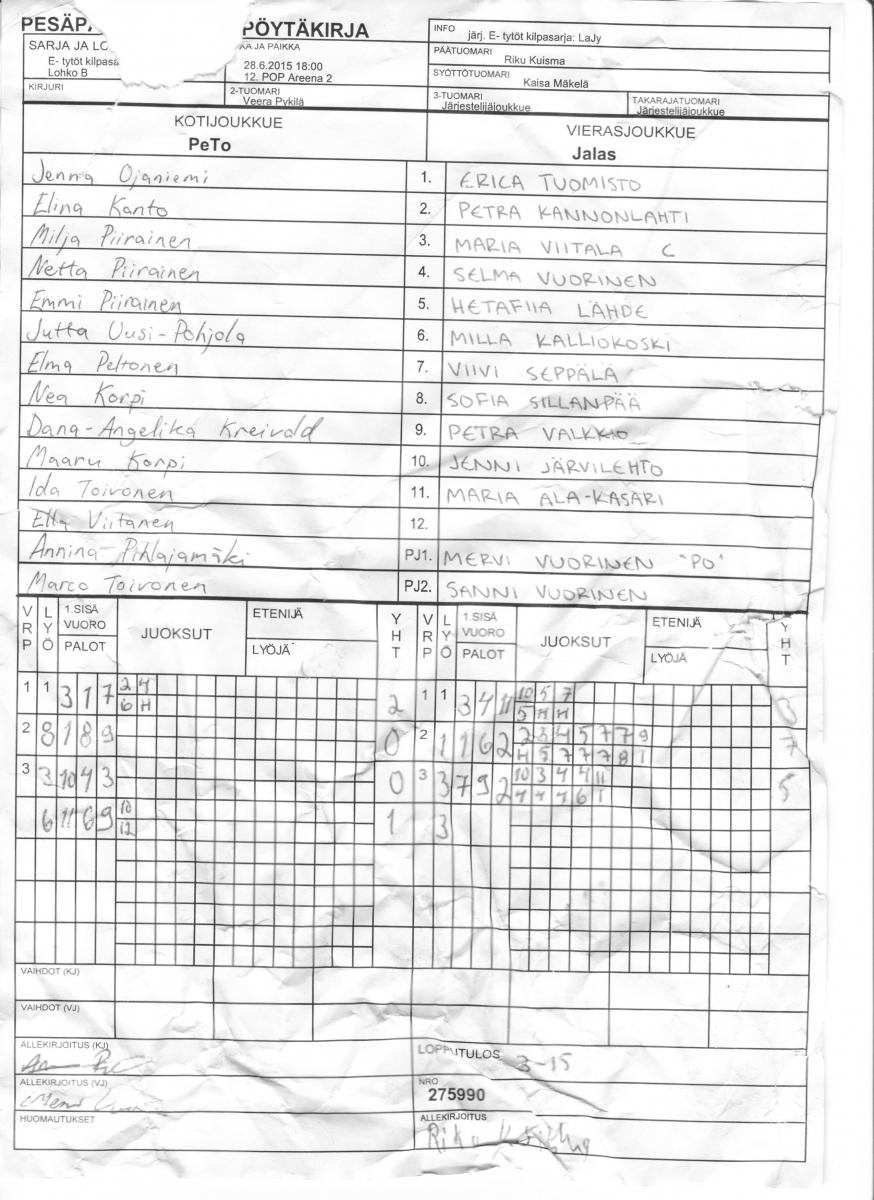 PESÄP PÖYTÄKIRJA
INFO järj. E- tytöt kilpasarja: LaJy
SARJA JA LO
E- tytöt kilpasa
Lohko B
AA JA PAIKKA
28.6.2015 18:00
12. POP Areena 2
PÄÄTUOMARI Riku Kuisma
SYÖTTÖTUOMARI Kaisa Mäkelä
KIRJURI
2-TUOMARI Veera Pykilä
3-TUOMARI Järjestelijäjoukkue
TAKARAJATUOMARI Järjestelijäjoukkue
KOTIJOUKKUE VIERASJOUKKUE
PeTo Jalas
Jenna Ojaniemi 1. ERICA TUOMISTO
Elina Kanto 2. PETRA KANNONLAHTI
Milja Piirainen 3. MARIA VIITALA C
Netta Piirainen 4. SELMA VUORINEN
Emmi Piirainen 5. HETAFIIA LÄHDE
Jutta Uusi-Pohjola 6. MILLA KALLIOKOSKI
Elma Peltonen 7. VIIVI SEPPÄLÄ
Nea Korpi 8. SOFIA SILLANPÄÄ
Dana-Angelika Kreivald 9. PETRA VALKKIO
Maaru Korpi 10. JENNI JÄRVILEHTO
Ida Toivonen 11. MARIA ALA-KASARI
Ella Viitanen 12.
Annina Pihlajamäki PJ1. MERVI VUORINEN "PO"
Marco Toivonen PJ2. SANNI VUORINEN
VRP LYÖ 1.SISÄ VUORO PALOT JUOKSUT ETENIJÄ LYÖJÄ YHT VRP LYÖ 1.SISÄ VUORO PALOT JUOKSUT ETENIJÄ LYÖJÄ YHT
1 1 3 1 7 2 4 2 1 1 3 4 11 10 5 7 3
6 H 5 H H
2 8 1 8 9 0 2 1 1 6 2 2 3 4 5 7 7 9 7
H 5 7 7 7 8 1
3 3 10 4 3 0 3 3 7 9 2 10 3 4 4 11 5
4 4 4 6 1
6 11 6 9 10 1 3
12
VAIHDOT (KJ)
VAIHDOT (VJ)
ALLEKIRJOITUS (KJ) LOPPUTULOS 3-15
ALLEKIRJOITUS (VJ) NRO 275990
HUOMAUTUKSET ALLEKIRJOITUS